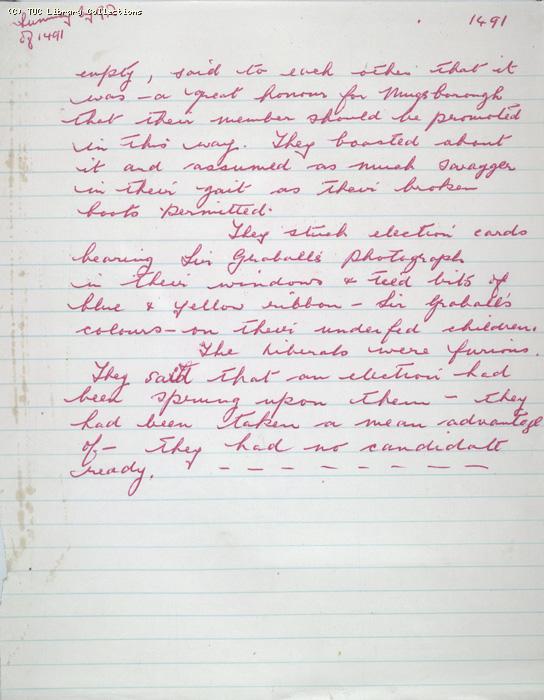 (C) TUC Library Collections
of 1491
1491
empty, said to each other that it
was - a great honour for Mugsborough
that their member should be promoted
in this way. They boasted about
it and assumed as much swagger
in their gait as their broken
boots permitted.
They stuck election cards
bearing Sir Graball's photograph
in their windows & tied bits of
blue & yellow ribbon - Sir Graball's
colours - on their underfed children.
The Liberals were furious.
They said that an election had
been sprung upon them - they
had been taken a mean advantage
of - they had no candidate
ready. - - - - - - - - -